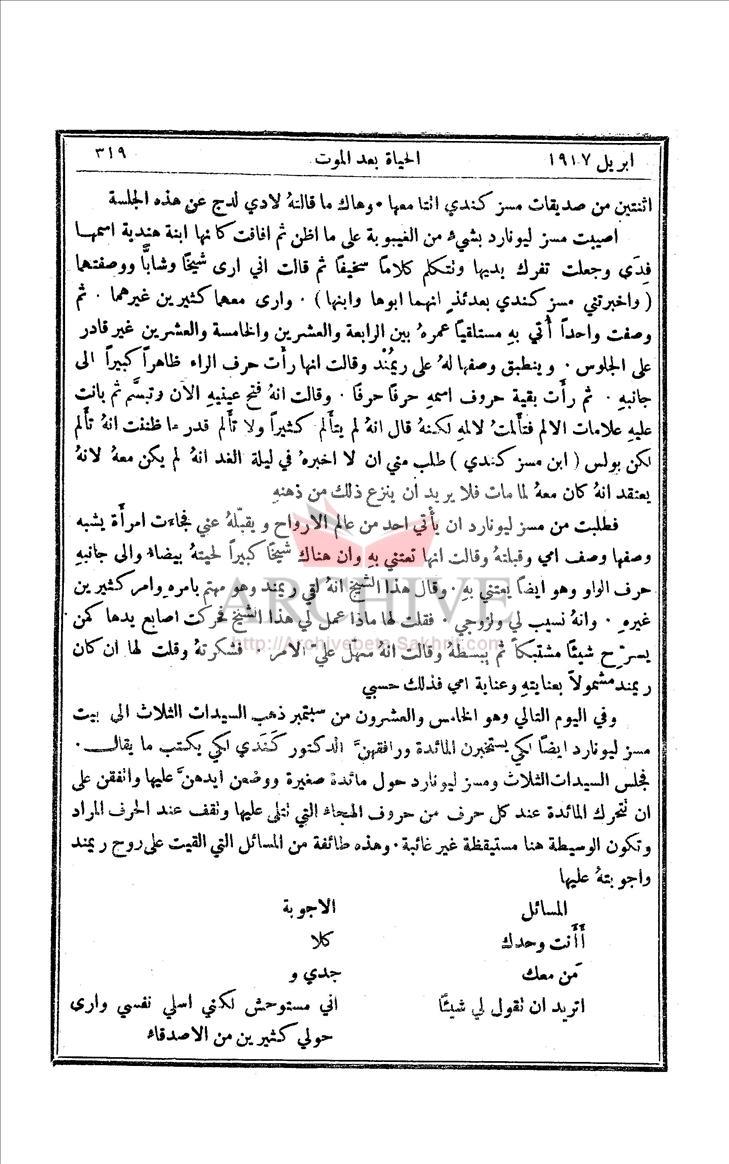 ابريل ١٩١٧ الحياة بعد الموت ٣١٩
اثنتين من صديقات مسز كندي اتتا معها ٠ وهاك ما قالتهُ لادي لدج عن هذه الجلسة
اصيبت مسز ليونارد بشيء من الغيبوبة على ما اظن ثم افاقت كانها ابنة هندية اسمها
فِدَي وجعلت تفرك يديها وتتكلم كلاماً سخيفاً ثم قالت اني ارى شيخاً وشابًّا ووصفتهما
( واخبرتني مسز كندي بعدئذٍ انهما ابوها وابنها ) ٠ وارى معهما كثيرين غيرهما ٠ ثم
وصفت واحداً أُتي بهِ مستلقياً عمرهُ بين الرابعة والعشرين والخامسة والعشرين غير قادر
على الجلوس ٠ وينطبق وصفها لهُ على ريمُند وقالت انها رأت حرف الراء ظاهراً كبيراً الى
جانبهِ ٠ ثم رأت بقية حروف اسمهِ حرفاً حرفاً ٠ وقالت انهُ فتح عينيهِ الآن وتبسَّم ثم بانت
عليهِ علامات الالم فتألمتُ لالمهِ لكنهُ قال انهُ لم يتألم كثيراً ولا تألم قدر ما ظننت انهُ تألم
لكن بولس ( ابن مسز كندي ) طلب مني ان لا اخبرهُ في ليلة الغد انهُ لم يكن معهُ لانهُ
يعتقد انهُ كان معهُ لما مات فلا يريد ان ينزع ذلك من ذهنهِ
فطلبت من مسز ليونارد ان يأتي احد من عالم الارواح ويقبّلهُ عني فجاءت امرأة يشبه
وصفها وصف امي وقبلتهُ وقالت انها تعتني بهِ وان هناك شيخاً كبيراً لحيتهُ بيضاء والى جانبهِ
حرف الواو وهو ايضاً يعتني بهِ ٠ وقال هذا الشيخ انهُ لقي ريمند وهو مهتم بامره وامر كثيرين
غيرهِ ٠ وانهُ نسيب لي ولزوجي ٠ فقلت لها ماذا عمل لي هذا الشيخ فحركت اصابع يدها كمن
يسرّح شيئاً مشتبكاً ثم يبسطهُ وقالت انهُ سهل عليَّ الامر ٠ فشكرتهُ وقلت لها ان كان
ريمند مشمولاً بعنايتهِ وعناية امي فذلك حسبي
وفي اليوم التالي وهو الخامس والعشرون من سبتمبر ذهب السيدات الثلاث الى بيت
مسز ليونارد ايضاً لكي يستخبرن المائدة ورافقهنَّ الدكتور كندي لكي يكتب ما يقال ٠
فجلس السيدات الثلاث ومسز ليونارد حول مائدة صغيرة ووضعن ايدهنَّ عليها واتفقن على
ان تتحرك المائدة عند كل حرف من حروف الهجاء التي تتلى عليها وتقف عند الحرف المراد
وتكون الوسيطة هنا مستيقظة غير غائبة ٠ وهذه طائفة من المسائل التي القيت على روح ريمند
واجوبتهُ عليها
المسائل الاجوبة
أأنت وحدك كلا
مَن معك جدي و
اتريد ان تقول لي شيئاً اني مستوحش لكنني اسلي نفسي وارى
حولي كثيرين من الاصدقاء
ARCHIVE
http://Archivebeta.Sakhrit.com